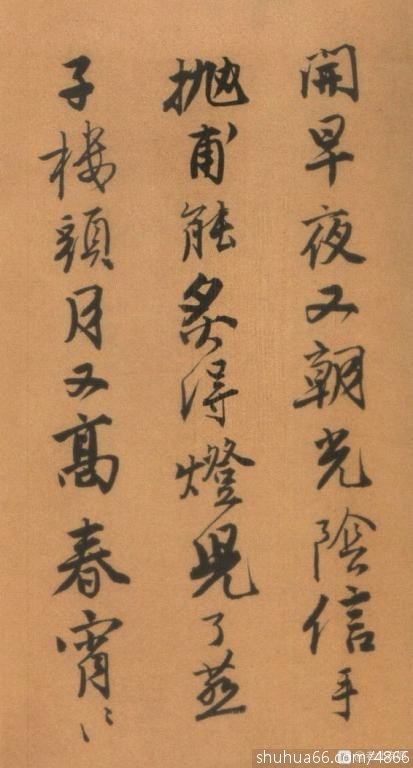 開早夜又朝光陰信手
拋甫能炙得燈兒了燕
子樓頭月又高春宵〻
shuhua66.com/4866